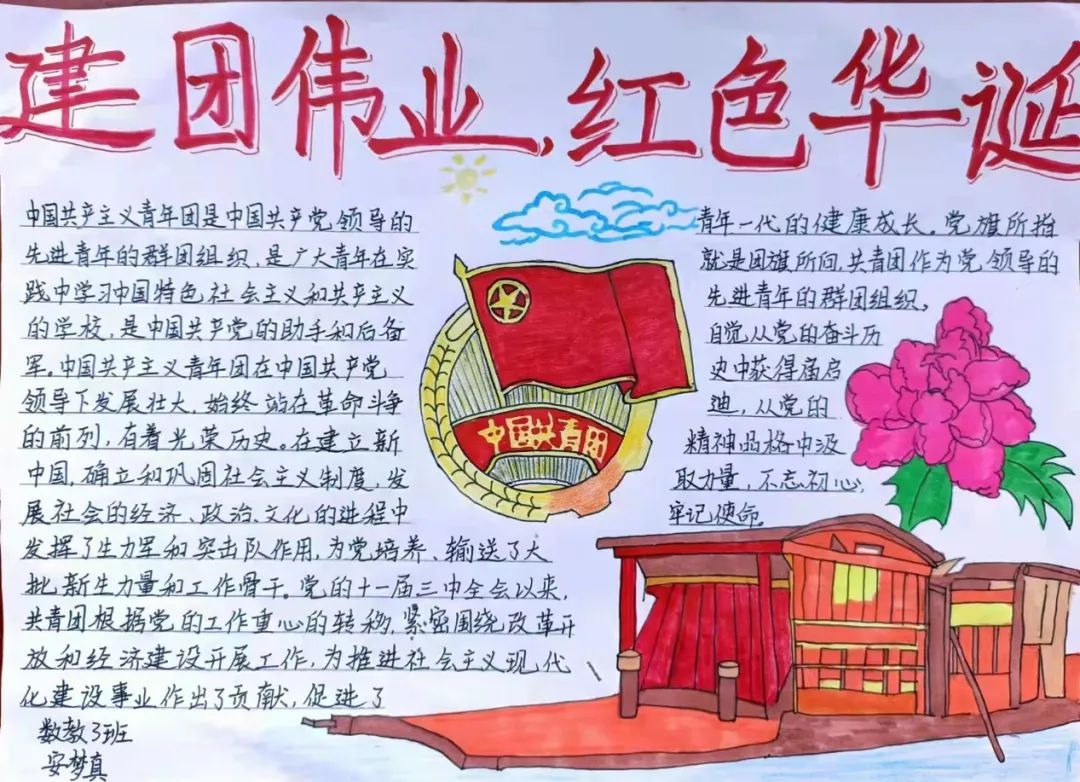 建团伟业,红色华诞
中国共产主义青年团是中国共产党领导的
先进青年的群团组织,是广大青年在实
践中学习中国特色社会主义和共产主义
的学校,是中国共产党的助手和后备
军。中国共产主义青年团在中国共产党
领导下发展壮大,始终站在革命斗争
的前列,有着光荣历史。在建立新
中国,确立和巩固社会主义制度,发
展社会的经济、政治、文化的进程中
发挥了生力军和突击队作用,为党培养、输送了大
批新生力量和工作骨干。党的十一届三中全会以来,
共青团根据党的工作重心的转移,紧密围绕改革开
放和经济建设开展工作,为推进社会主义现代
化建设事业作出了贡献,促进了
数教3班
安梦真
中国共青团
青年一代的健康成长。党旗所指
就是团旗所向,共青团作为党领导的
先进青年的群团组织。
自觉从党的奋斗历
史中获得启
迪,从党的
精神品格中汲
取力量,不忘初心,
牢记使命。